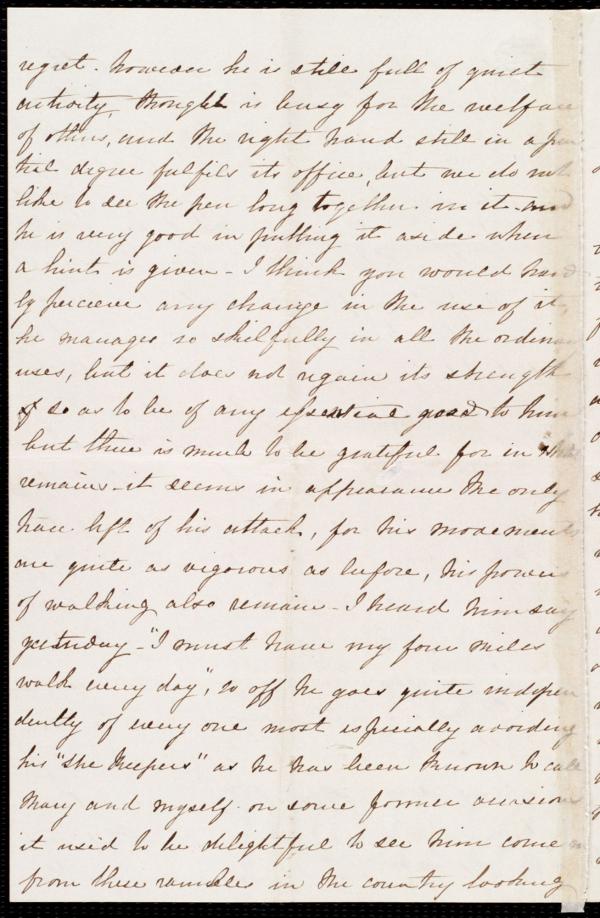 regret. however he is still full of quiet
activity, thought is busy for the welfare
of others, and the right hand still in a par
tial degree fulfils its office, but we do not
like to see the pen long together in it and
he is very good in putting it aside when
a hint is given - I think you would hard
ly perceive any change in the use of it,
he manages so skilfully in all the ordinary
uses, but it does not regain its strength
so as to be of any essential good to him
but there is much to be grateful for in what
remains - it seems in appearance the only
trace left of his attack, for his movements
are quite as vigorous as before, his powers
of walking also remain - I heard him say
yesterday - "I must have my four miles
walk every day", so off he goes quite indepen
dently of every one most especially avoiding
his "She Keepers" as he has been known to call
Mary and myself on some former occasions
it used to be delightful to see him come in
from these rambles in the country looking